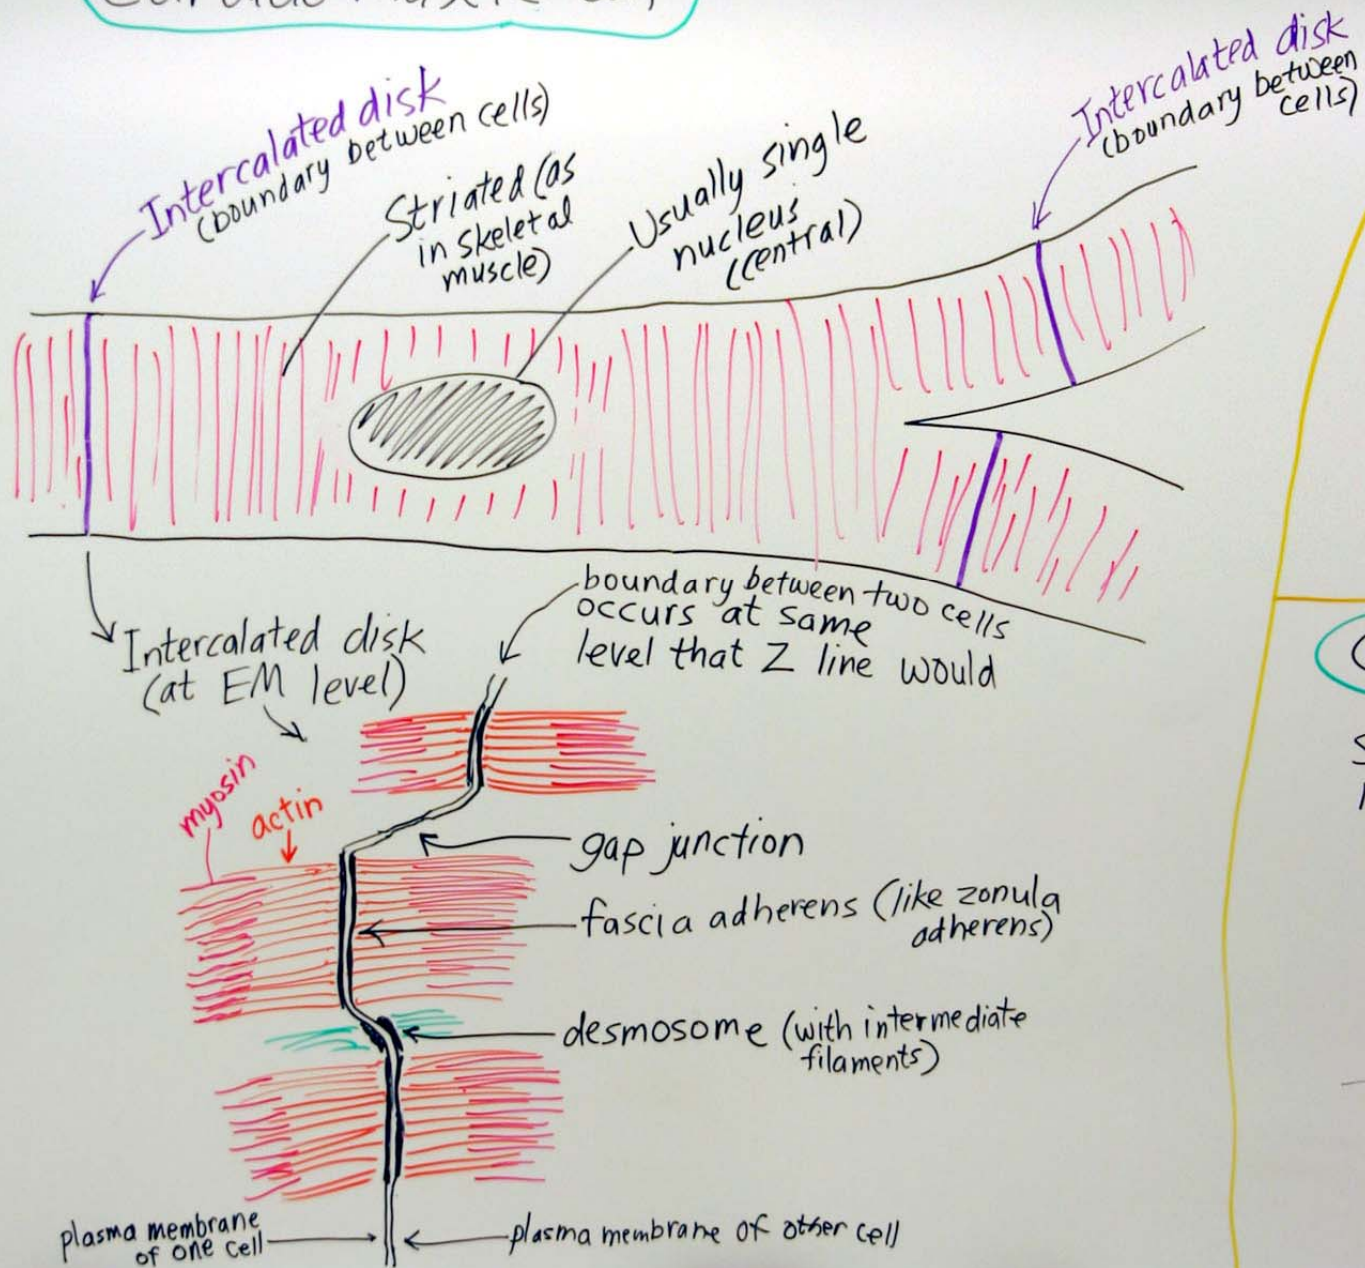 Intercalated disk
(boundary between cells)
Striated (as
in skeletal
muscle)
Usually single
nucleus
(central)
Intercalated disk
(boundary between
cells)
Intercalated disk
(at EM level)
boundary between two cells
occurs at same
level that Z line would
myosin
actin
gap junction
fascia adherens (like zonula
adherens)
desmosome (with intermediate
filaments)
plasma membrane
of one cell
plasma membrane of other cell